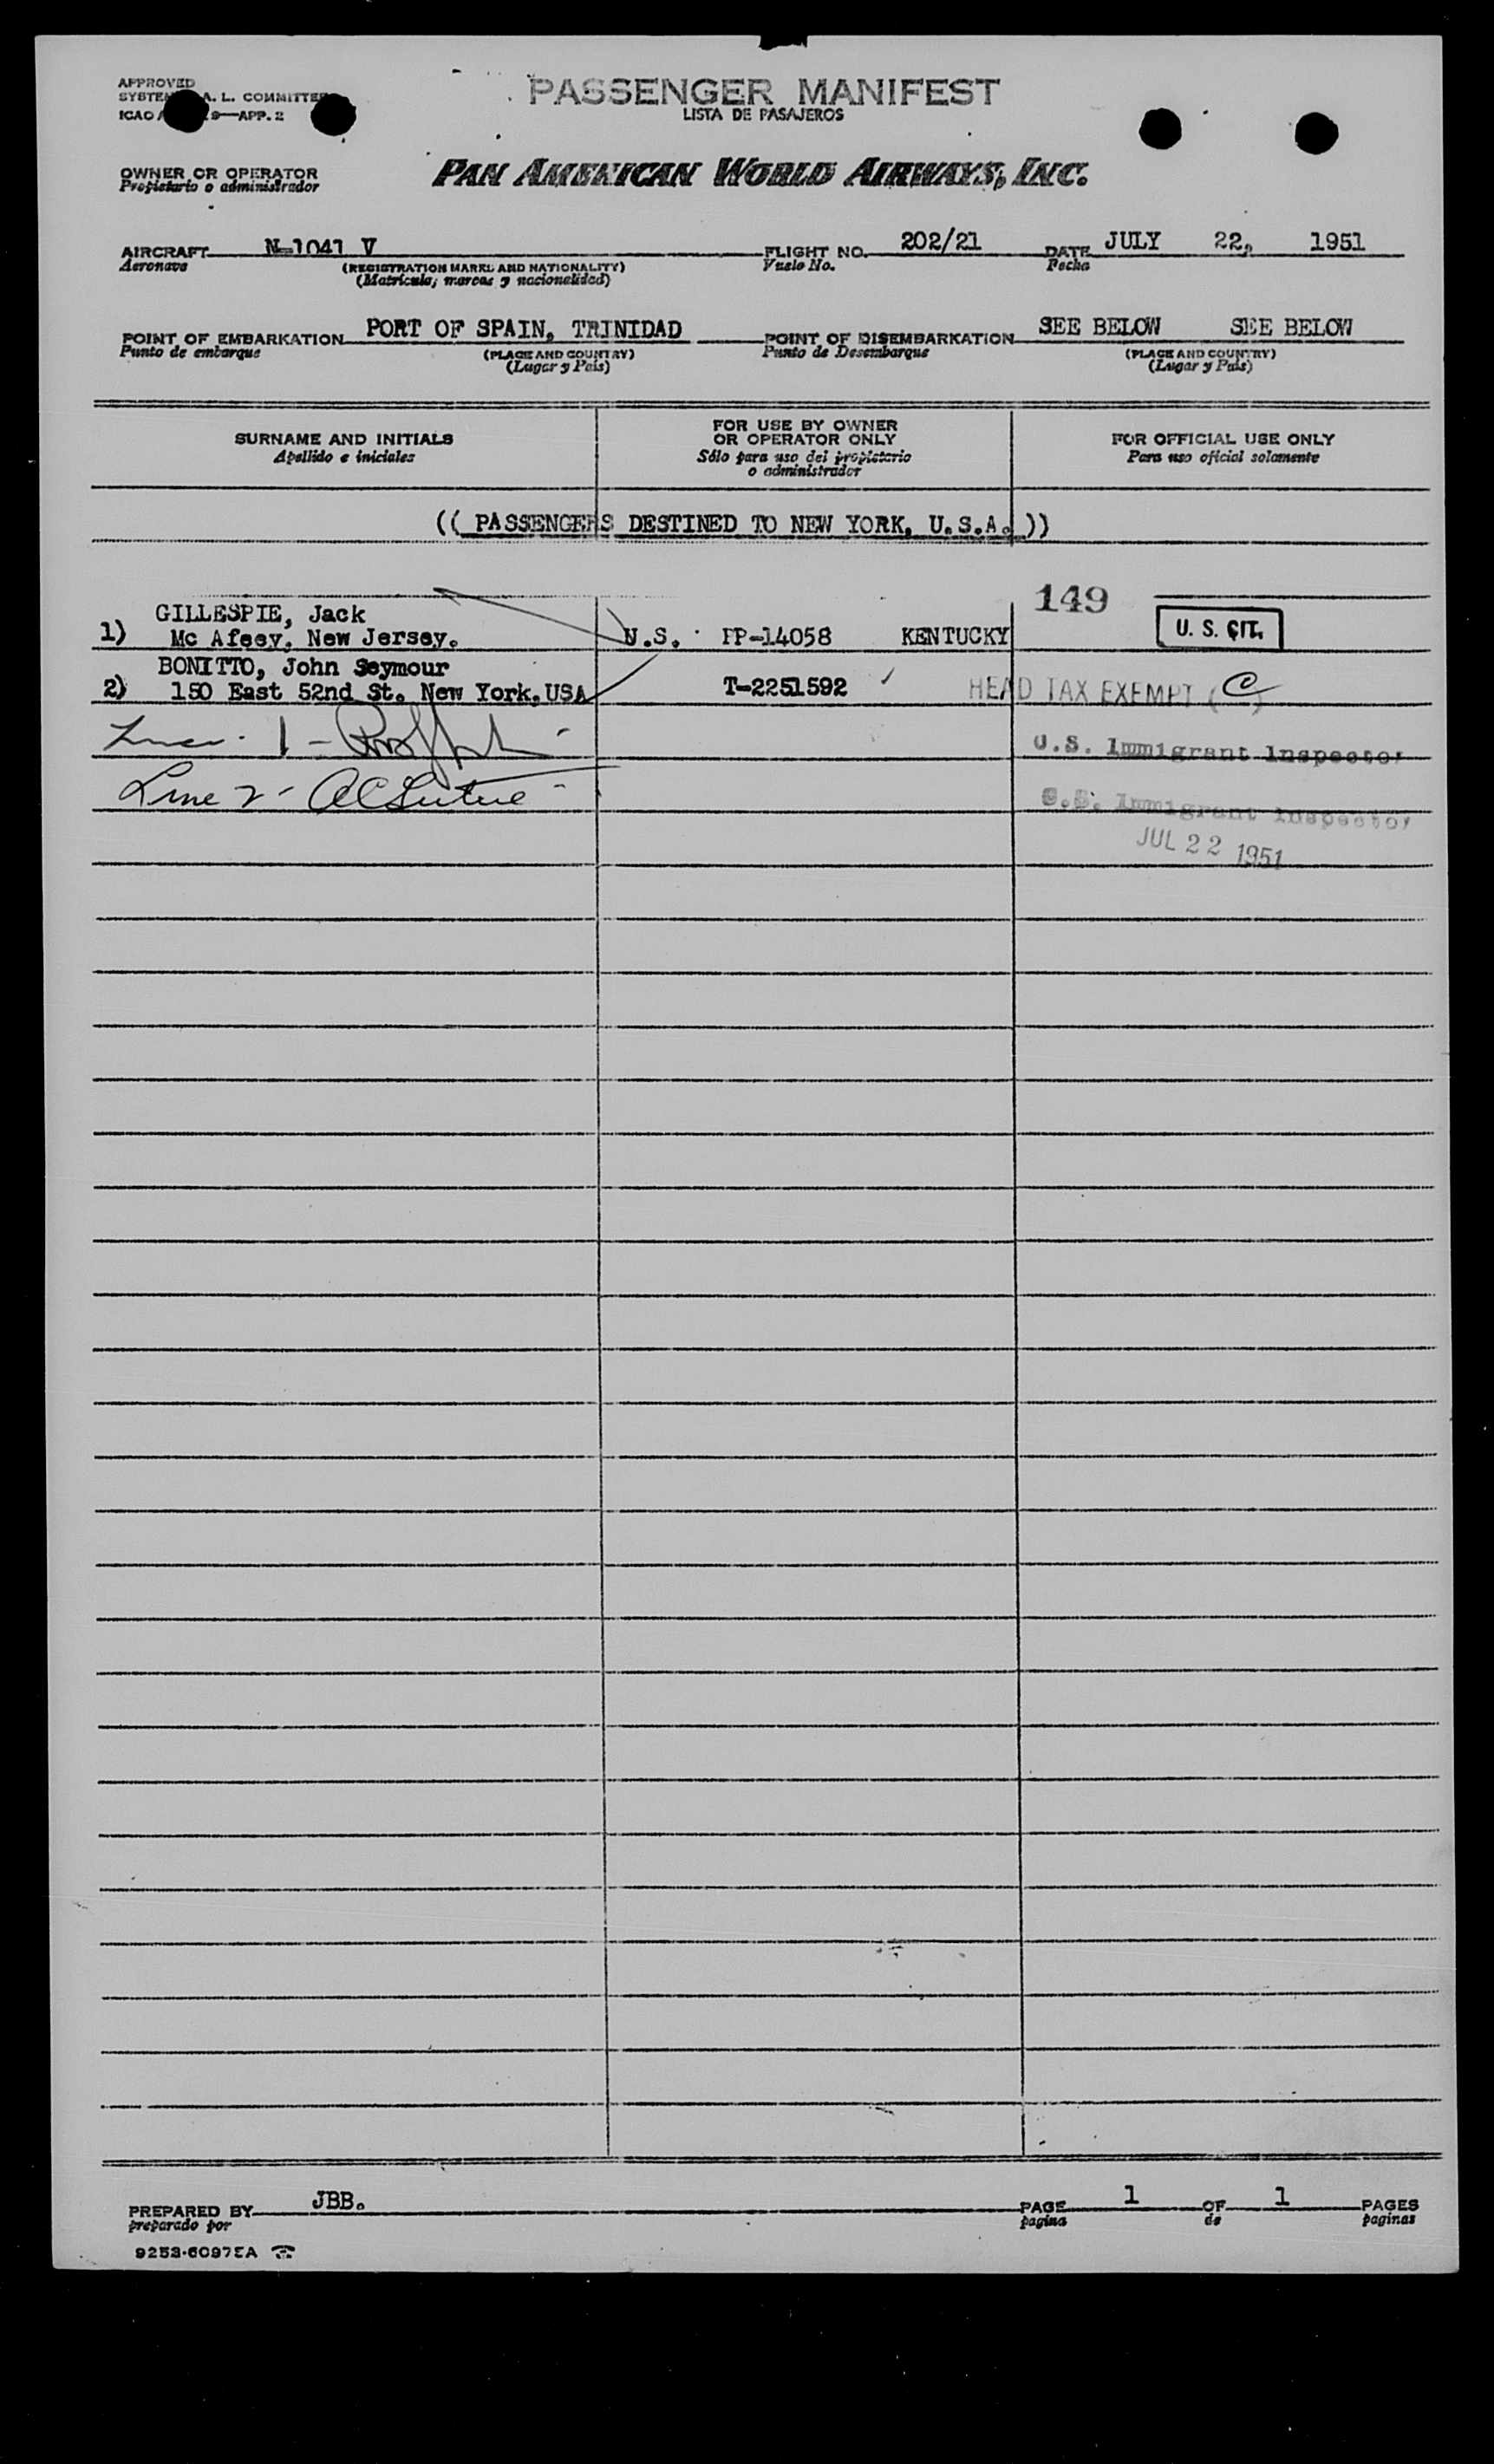 APPROVED
SYSTEM A. L. COMMITTEE
ICAO 9—APP. 2
PASSENGER MANIFEST
LISTA DE PASAJEROS
OWNER OR OPERATOR
Propietario o administrador
PAN AMERICAN WORLD AIRWAYS, INC.
AIRCRAFT N-1041 V FLIGHT NO. 202/21 DATE JULY 22, 1951
Aeronave (REGISTRATION MARKS AND NATIONALITY) Vuelo No. Fecha
(Matricula, marcas y nacionalidad)
POINT OF EMBARKATION PORT OF SPAIN, TRINIDAD POINT OF DISEMBARKATION SEE BELOW SEE BELOW
Punto de embarque (PLACE AND COUNTRY) Punto de Desembarque (PLACE AND COUNTRY)
(Lugar y Pais) (Lugar y Pais)
SURNAME AND INITIALS FOR USE BY OWNER OR OPERATOR ONLY FOR OFFICIAL USE ONLY
Apellido e iniciales Sólo para uso del propietario o administrador Para uso oficial solamente
(( PASSENGERS DESTINED TO NEW YORK, U.S.A. ))
149
GILLESPIE, Jack
1) Mc Afeey, New Jersey. U.S. PP-14058 KENTUCKY U. S. CIT.
BONITTO, John Seymour
2) 150 East 52nd St. New York, USA T-2251592 ✓ HEAD TAX EXEMPT (C)
1 -
U.S. Immigrant Inspector
Line 2 -
U.S. Immigrant Inspector
JUL 22 1951
PREPARED BY JBB. PAGE 1 OF 1 PAGES
preparado por pagina de paginas